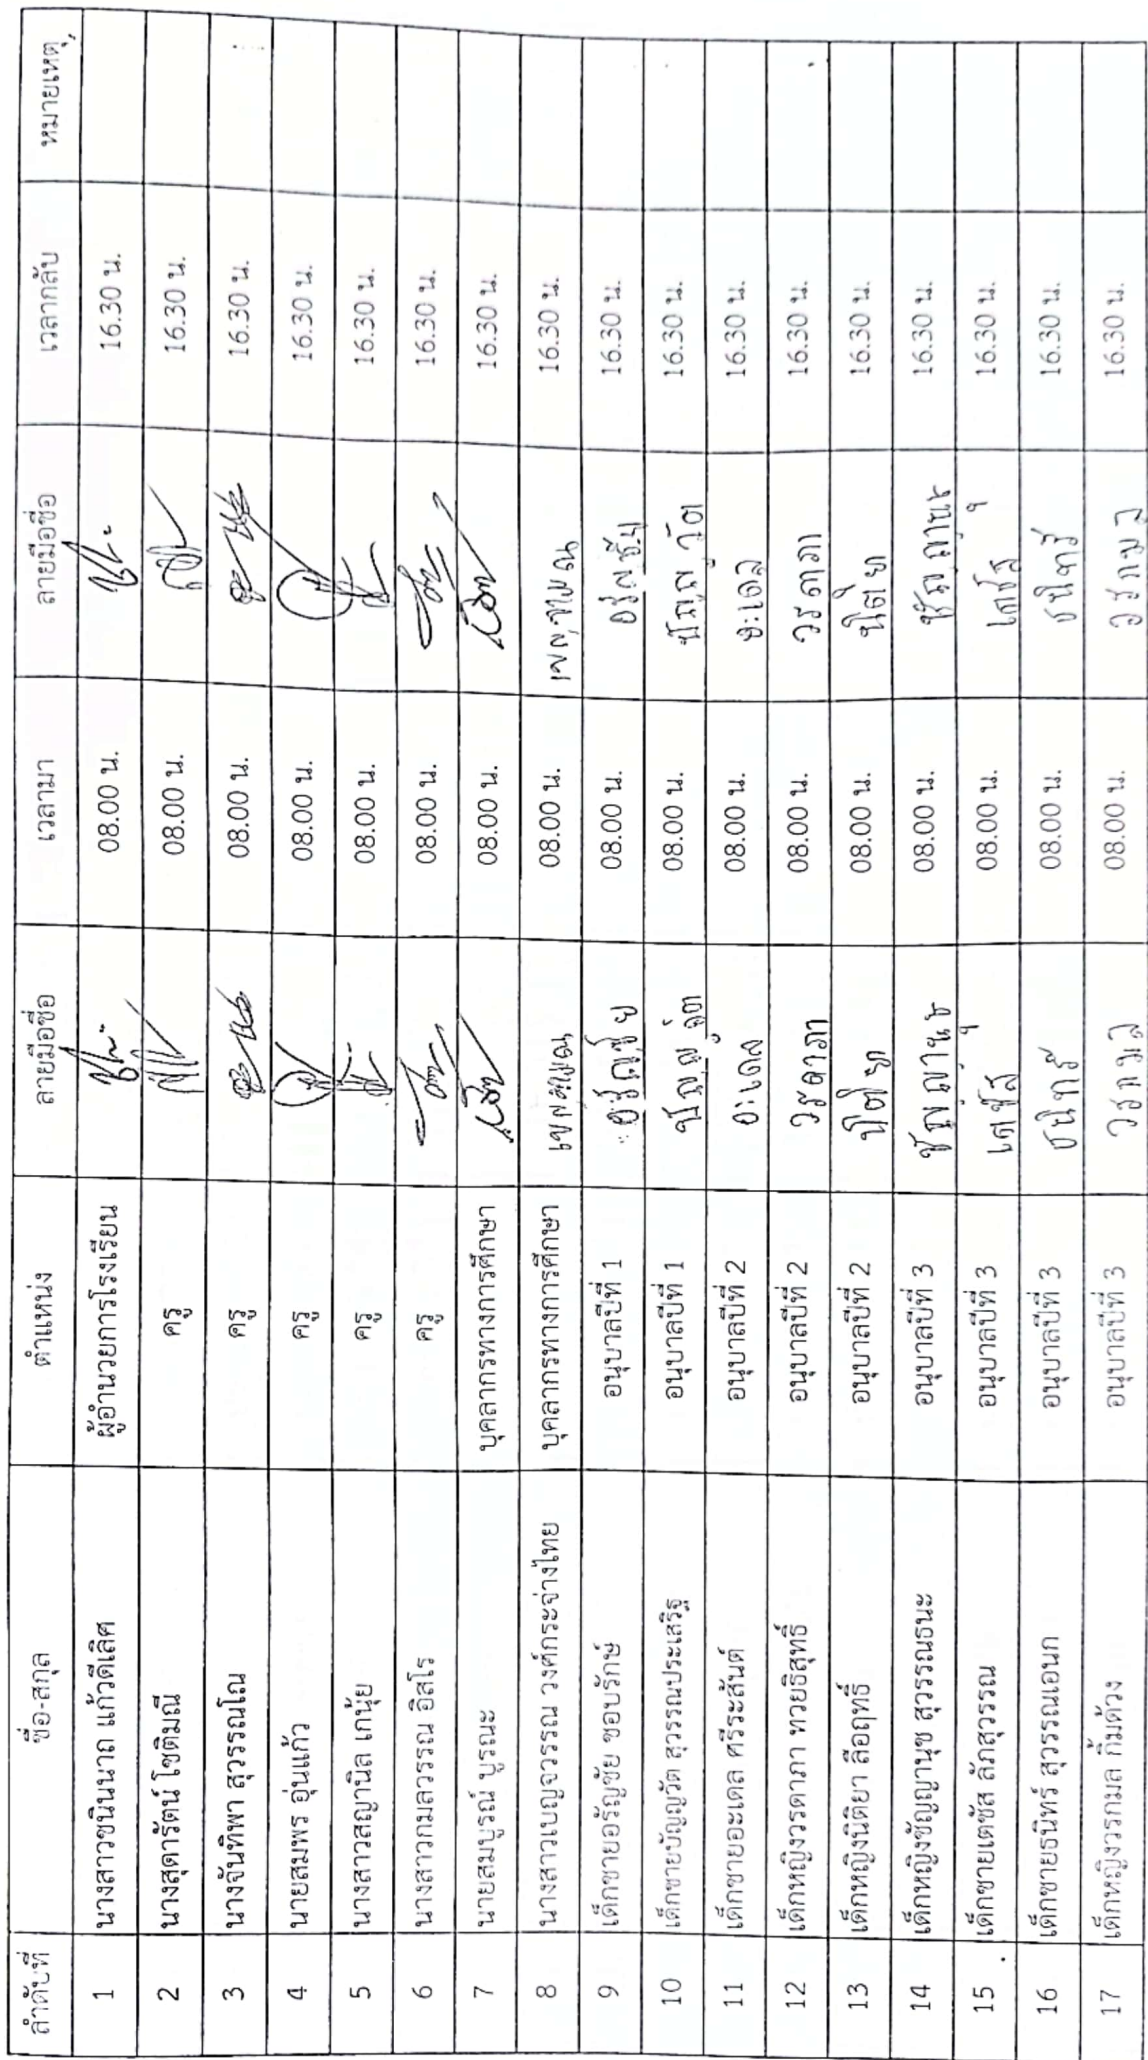 ลำดับที่ ชื่อ-สกุล ตำแหน่ง ลายมือชื่อ เวลามา ลายมือชื่อ เวลากลับ หมายเหตุ
1 นางสาวชนินนาถ แก้วดีเลิศ ผู้อำนวยการโรงเรียน 08.00 น. 16.30 น.
2 นางสุดารัตน์ โชติมณี ครู 08.00 น. 16.30 น.
3 นางจันทิพา สุวรรณโณ ครู 08.00 น. 16.30 น.
4 นายสมพร อุ่นแก้ว ครู 08.00 น. 16.30 น.
5 นางสาวสญานิล เกนุ้ย ครู 08.00 น. 16.30 น.
6 นางสาวกมลวรรณ อิสโร ครู 08.00 น. 16.30 น.
7 นายสมบูรณ์ บูรณะ บุคลากรทางการศึกษา 08.00 น. 16.30 น.
8 นางสาวเบญจวรรณ วงศ์กระจ่างไทย บุคลากรทางการศึกษา 08.00 น. 16.30 น.
9 เด็กชายอรัญชัย ชอบรักษ์ อนุบาลปีที่ 1 อรัญชัย 08.00 น. อรัญชัย 16.30 น.
10 เด็กชายบัญญวัต สุวรรณประเสริฐ อนุบาลปีที่ 1 08.00 น. 16.30 น.
11 เด็กชายอะเดล ศรีระสันต์ อนุบาลปีที่ 2 อะเดล 08.00 น. อะเดล 16.30 น.
12 เด็กหญิงวรดาภา ทวยธิสุทธิ์ อนุบาลปีที่ 2 วรดาภา 08.00 น. วรดาภา 16.30 น.
13 เด็กหญิงนิติยา ลือฤทธิ์ อนุบาลปีที่ 2 08.00 น. 16.30 น.
14 เด็กหญิงชัญญานุช สุวรรณธนะ อนุบาลปีที่ 3 ชัญญานุช 08.00 น. ชัญญานุช 16.30 น.
15 เด็กชายเตชัส ลัภสุวรรณ อนุบาลปีที่ 3 เตชัส 08.00 น. เตชัส 16.30 น.
16 เด็กชายธนินทร์ สุวรรณเอนก อนุบาลปีที่ 3 08.00 น. 16.30 น.
17 เด็กหญิงวรกมล กิ้มด้วง อนุบาลปีที่ 3 วรกมล 08.00 น. วรกมล 16.30 น.